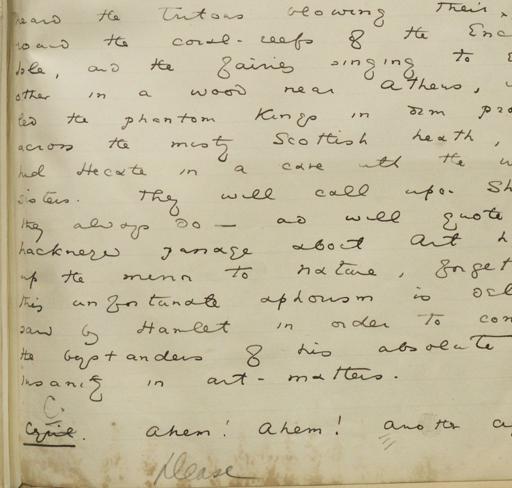 heard the Tritons blowing their
round the coral-reefs of the Enc
ble, and the fairies singing to
other in a wood near Athens,
led the phantom Kings in dim pro
across the misty Scottish heath,
hid Hecate in a cave with the w
sisters. They will call upon Sh
they always do — and will quote
hackneyed passage about Art h
up the mirror to nature, forget
this unfortunate aphorism is del
said by Hamlet in order to con
the bystanders of his absolute
insanity in art-matters.
C.
Cyril. Ahem! Ahem! another ci
please